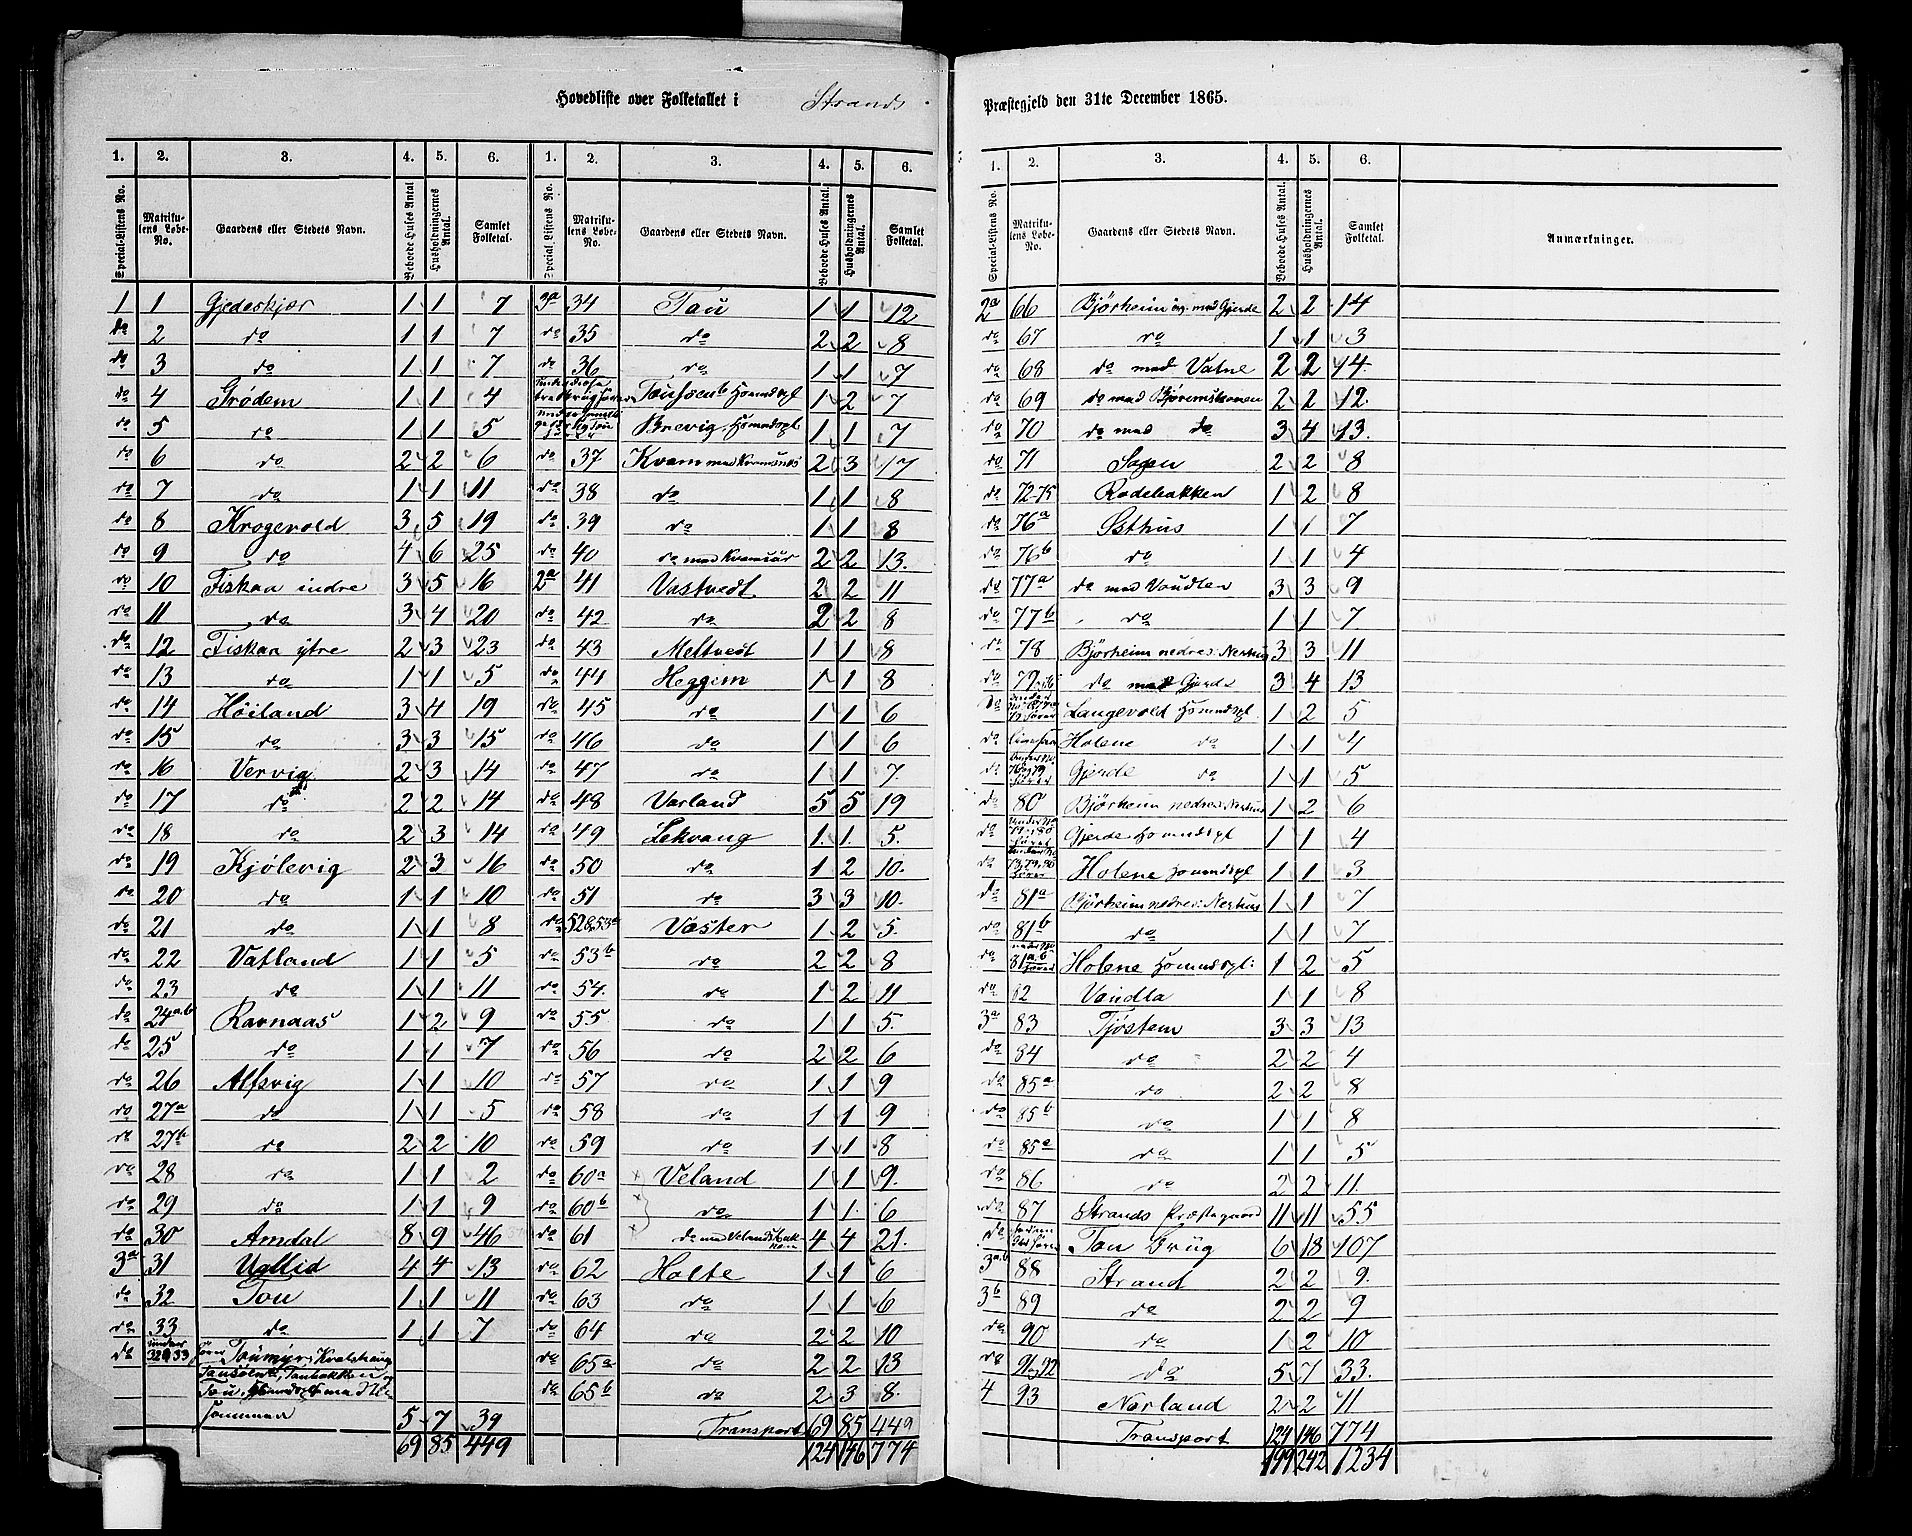 Hovedliste over Folketallet i Strands Præstegjeld den 31te December 1865.
1. 2. 3. 4. 5. 6. 1. 2. 3. 4. 5. 6.
Special-Listens No. Matrikulens Løbe-No. Gaardens eller Stedets Navn. Beboede Huses Antal Husholdningernes Antal. Samlet Folketal. Special-Listens No. Matrikulens Løbe-No. Gaardens eller Stedets Navn. Beboede Huses Antal. Husholdningernes Antal. Samlet Folketal.
1 1 Gjedeskjær 1 1 7
do 2 do 1 1 7
do 3 do 1 1 7
do 4 Grødem 1 1 4
do 5 do 1 1 5
do 6 do 2 2 6
do 7 do 1 1 11
do 8 Krogevold 3 5 19
do 9 do 4 6 25
do 10 Fiskaa indre 3 5 16
do 11 do 3 4 20
do 12 Fiskaa ytre 2 3 23
do 13 do 1 1 5
do 14 Høiland 3 4 19
do 15 do 3 3 15
do 16 Vervig 2 3 14
do 17 do 2 2 14
do 18 do 2 3 14
do 19 Kjølevig 2 3 16
do 20 do 1 1 10
do 21 do 1 1 8
do 22 Vatland 1 1 5
do 23 do 1 1 11
do 24a.b Ravnaas 1 2 9
do 25 do 1 1 7
do 26 Alfsvig 1 1 10
do 27a do 1 1 5
do 27b do 2 2 10
do 28 do 1 1 2
do 29 do 1 1 9
do 30 Amdal 8 9 46
3a 31 Ullid 4 4 13
do 32 Tou 1 1 11
do 33 do 1 1 7
do under 32 & 33 Toumyr, Kvalshaug
sammen 5 7 39
69 85 449
3a 34 Tau 1 1 12
do 35 do 2 2 8
do 36 do 1 1 7
Huusmdspl 1 2 7
Brevig Huusmdspl 1 1 7
do 37 Kvam med Kvamsnæs 2 3 17
do 38 do 1 1 8
do 39 do 1 1 8
do 40 do med Kvamsur 2 2 13
2a 41 Vastvedt 2 2 11
do 42 do 2 2 8
do 43 Meltvedt 1 1 8
do 44 Heggem 1 1 8
do 45 do 1 1 6
do 46 do 1 1 6
do 47 do 1 1 7
do 48 Varland 5 5 19
do 49 Lekvang 1 1 5
do 50 do 1 2 10
do 51 do 3 3 10
do 52&53a Vøster 1 2 5
do 53b do 2 2 8
do 54 do 1 2 11
do 55 do 1 1 5
do 56 do 2 2 6
do 57 do 1 1 9
do 58 do 1 1 9
do 59 do 1 1 8
do 60a Veland 1 1 9
do 60b do 1 1 6
do 61 do med Velandsbakken 4 4 21
do 62 Holte 1 1 6
do 63 do 1 1 6
do 64 do 2 2 10
do 65a do 2 2 13
do 65b do 2 3 8
Transport 69 85 449
124 146 774
1. 2. 3. 4. 5. 6.
Special-Listens No. Matrikulens Løbe-No. Gaardens eller Stedets Navn. Beboede Huses Antal. Husholdningernes Antal. Samlet Folketal. Anmærkninger.
2a 66 Bjørheim øv. med Gjerde 2 2 14
do 67 do 1 1 3
do 68 do med Vatne 2 2 14
do 69 do med Bjøremsbonen 2 2 12
do 70 do med do 3 4 13
do 71 Sagen 2 2 8
do 72-75 Rødebakken 1 2 8
do 76a Østhus 1 1 7
do 76b do 1 1 4
do 77a do med Vaudlen 3 3 9
do 77b do 1 1 7
do 78 Bjørheim nedres Nerhus 3 3 11
do 79 do med Gjerde 3 4 13
do Langevold Huusmdspl 1 2 5
do Holene do 1 1 4
do Gjerde do 1 1 5
do 80 Bjørheim nedres Nerhus 1 2 6
do Gjerde Huusmdspl 1 1 4
do Holene Huusmdspl 1 1 3
do 81a Bjørheim nedres Nerhus 1 1 7
do 81b do 1 1 7
do under No 81a.b Holene Huusmdspl: 1 2 5
do 82 Vandla 1 1 8
3a 83 Tjøstem 3 3 13
do 84 do 2 2 4
do 85a do 2 2 8
do 85b do 1 1 8
do 85a do 1 1 5
do 86 do 2 2 11
do 87 Strands Præstegaard 11 11 55
do Tou Brug 6 18 107
3a.b 88 Strand 2 2 9
3b 89 do 2 2 9
do 90 do 1 2 10
do 91&92 do 5 7 33
4 93 Norland 2 2 11
Transport 124 146 774
199 242 1234